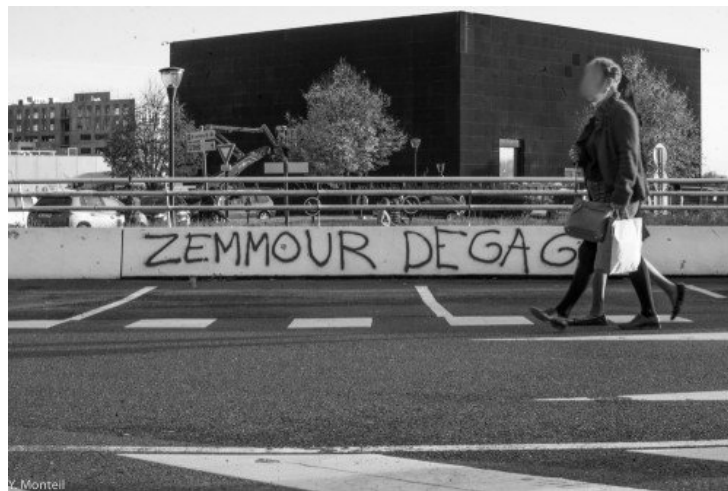 ZEMMOUR DEGAG
Y. Monteil